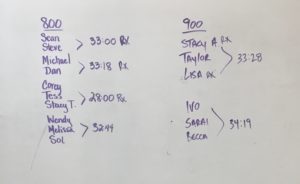 800
Sean
Steve
33:00 Rx
Michael
Dan
33:18 Rx
Corey
Tess
Stacy T.
28:00 Rx
Wendy
Melissa
Sol
32:44
900
STACY A RX
TAYLOR
LISA RX
33:28
IVO
SARAI
BECCA
34:19